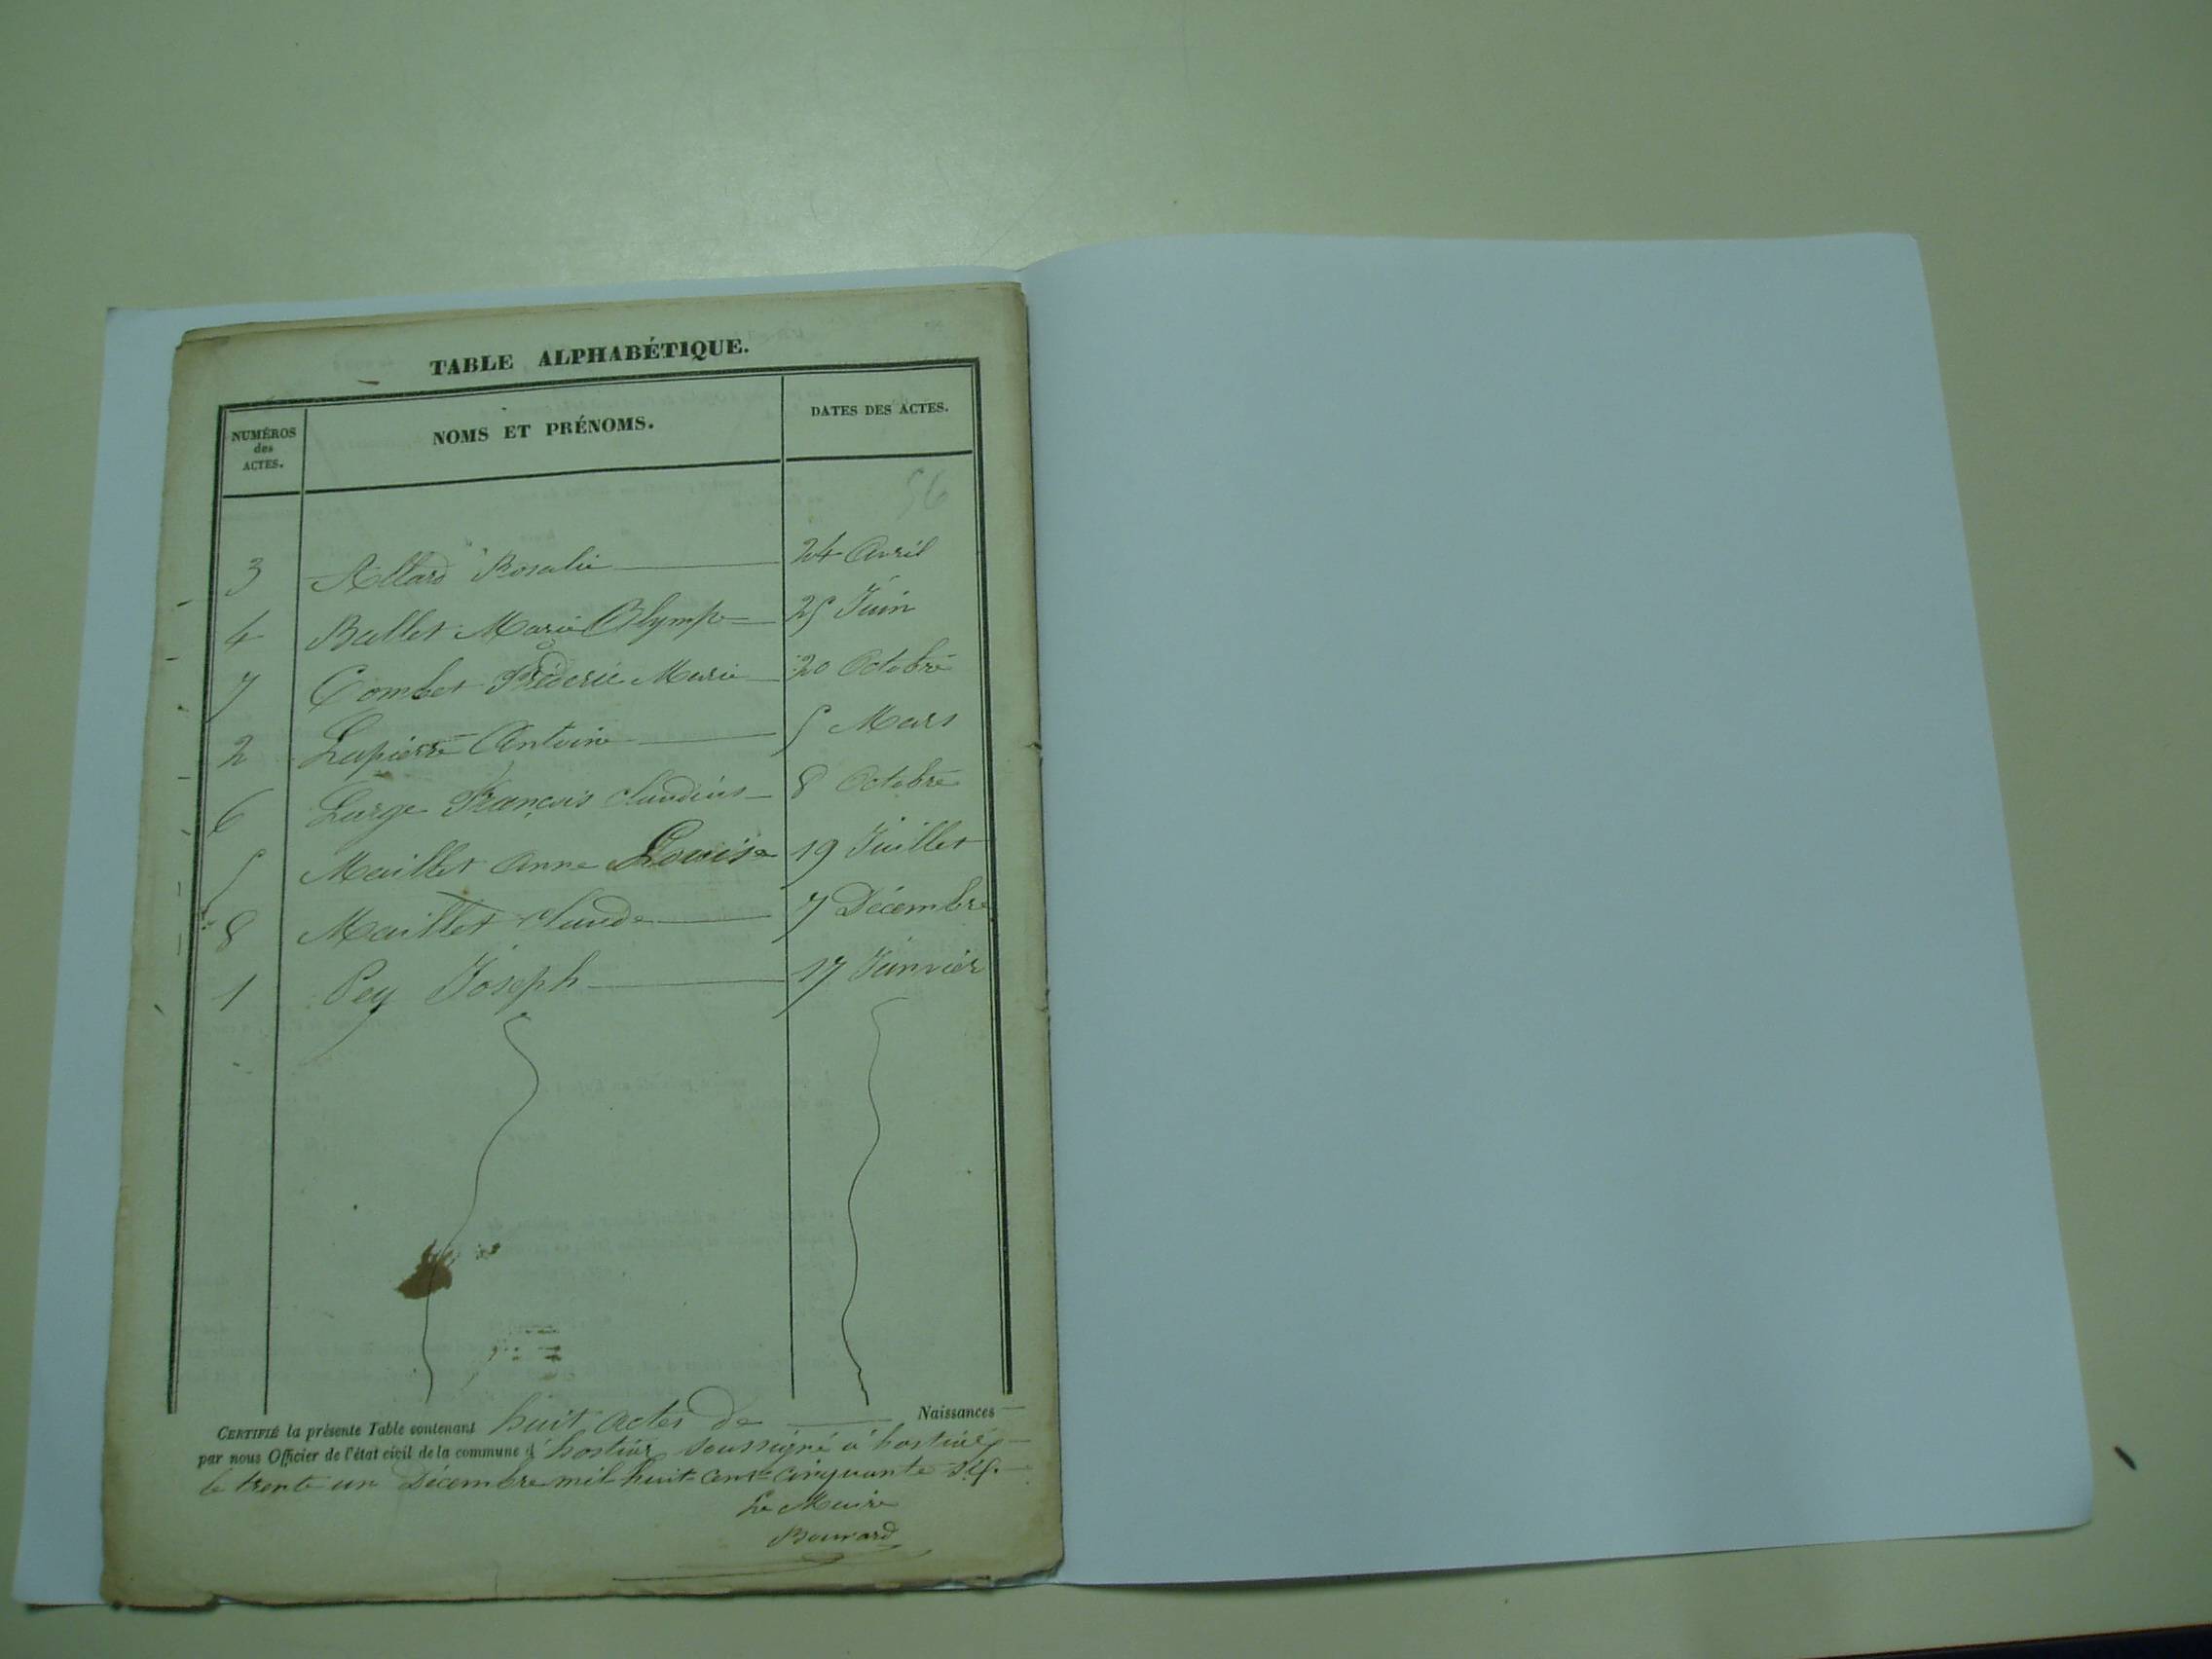 TABLE ALPHABÉTIQUE.
NUMÉROS des ACTES. NOMS ET PRÉNOMS. DATES DES ACTES.
56
3 Allard Rosalie 24 Avril
4 Ballet Marie Olympe 25 Juin
7 Combet Fréderic Marie 20 Octobre
2 Lapierre Antoine 5 Mars
6 Large François Claudius 8 Octobre
5 Maillet Anne Louise 19 Juillet
8 Maillet Claude 7 Décembre
1 Pey Joseph 17 Janvier
CERTIFIÉ la présente Table contenant huit actes de Naissances
par nous Officier de l'état civil de la commune d'hostiaz soussigné à hostiaz
le trente un Décembre mil huit cent cinquante six.
Le Maire